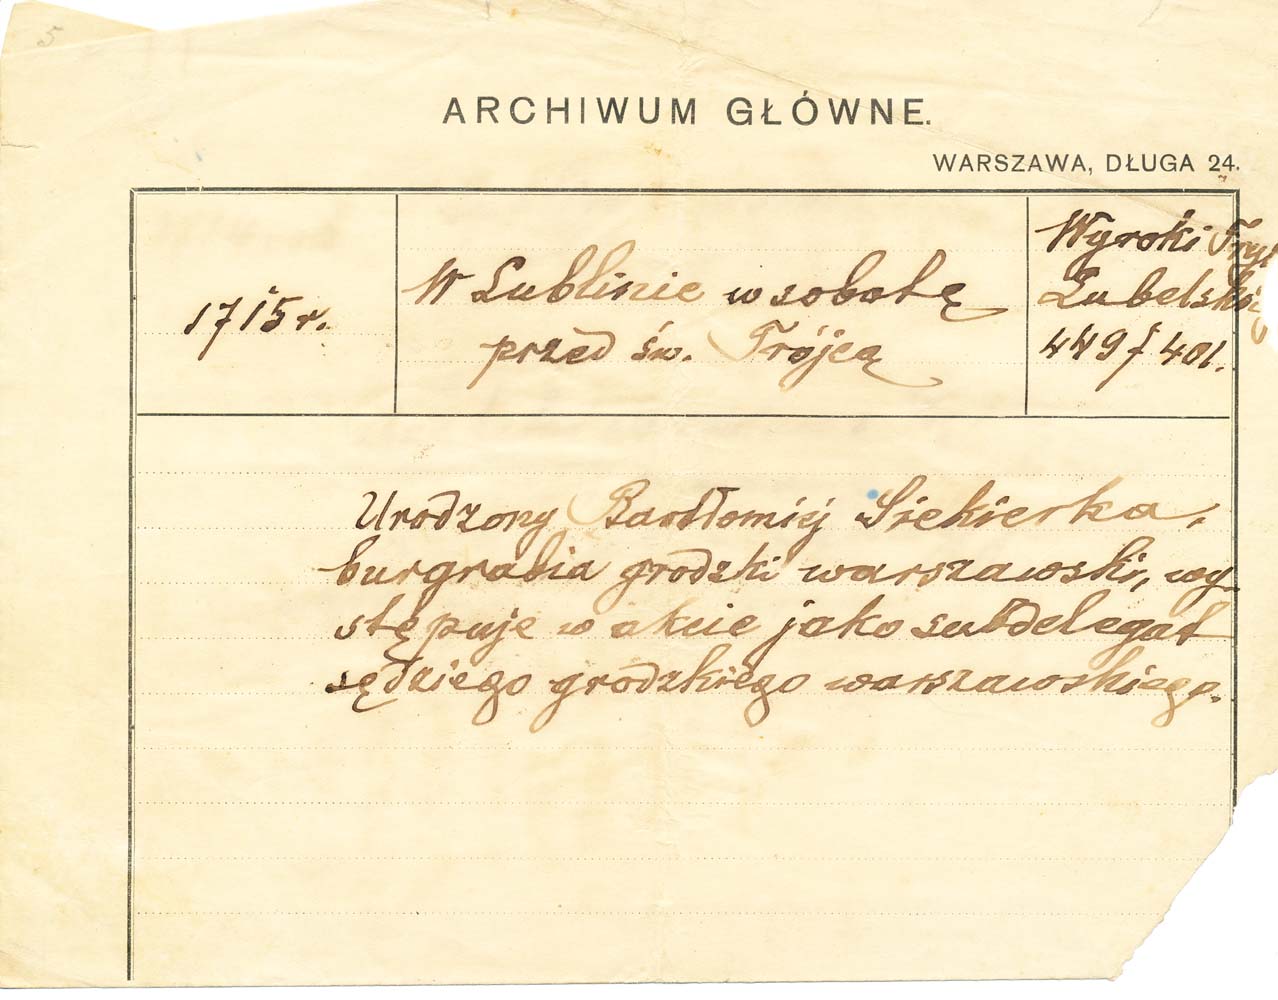 5
ARCHIWUM GŁÓWNE.
WARSZAWA, DŁUGA 24.
1715 r.
W Lublinie w sobotę
przed św. Trójcą
Wyroki Tryb
Lubelski
449 f 401.
Urodzony Bartłomiej Siekierka,
burgrabia grodzki warszawski, wy-
stępuje w akcie jako subdelegat
sędziego grodzkiego warszawskiego.